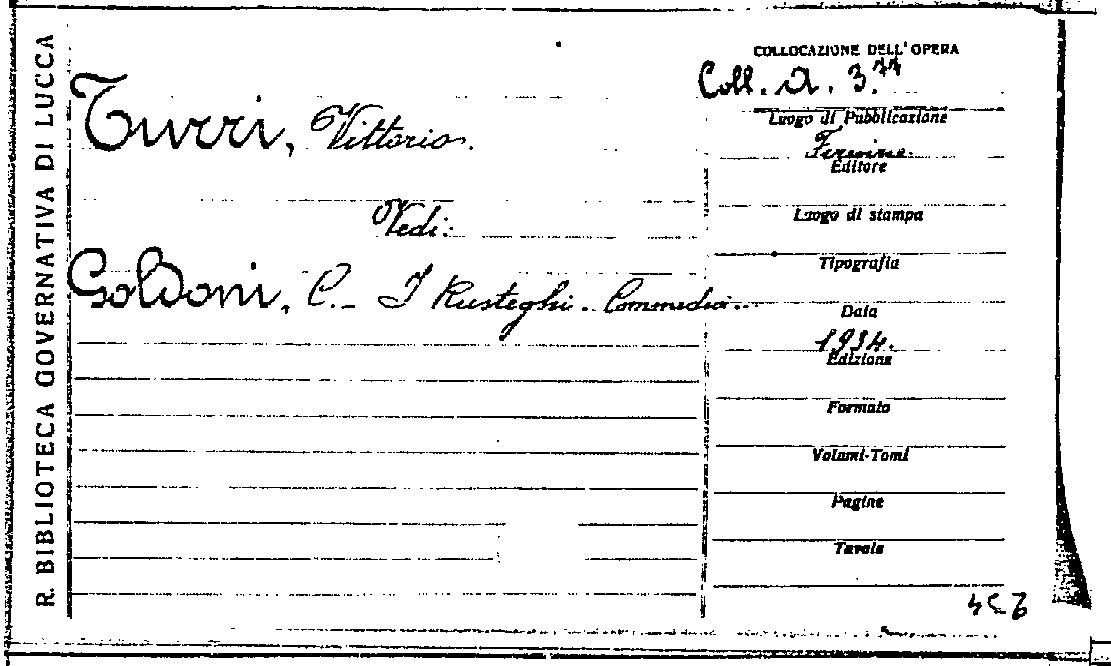 R. BIBLIOTECA GOVERNATIVA DI LUCCA
Turri, Vittorio.
Vedi:
Goldoni, C. - I Rusteghi. Commedia.
COLLOCAZIONE DELL'OPERA
Coll. A. 3.77
Luogo di Pubblicazione
Firenze.
Editore
Luogo di stampa
Tipografia
Data
1934.
Edizione
Formato
Volumi-Tomi
Pagine
Tavole